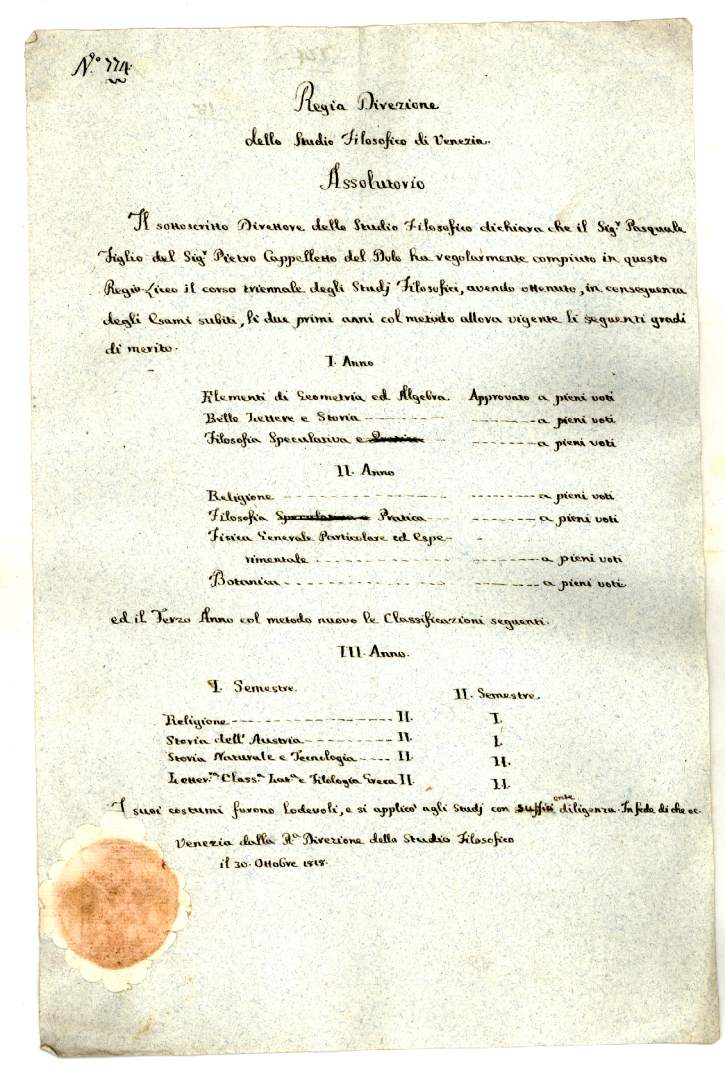 N.º 774.
Regia Direzione
dello Studio Filosofico di Venezia.
Assolutorio
Il sottoscritto Direttore dello Studio Filosofico dichiara che il Sig.r Pasquale
Figlio del Sig.r Pietro Cappelletto del Dolo ha regolarmente compiuto in questo
Regio Liceo il corso triennale degli Studj Filosofici, avendo ottenuto, in conseguenza
degli Esami subiti, li due primi anni col metodo allora vigente li seguenti gradi
di merito.
I. Anno
Elementi di Geometria ed Algebra. Approvato a pieni voti
Belle Lettere e Storia a pieni voti
Filosofia Speculativa e Pratica a pieni voti
II. Anno
Religione a pieni voti
Filosofia Speculativa e Pratica a pieni voti
Fisica Generale Particolare ed Espe-
rimentale a pieni voti
Botanica a pieni voti
ed il Terzo Anno col metodo nuovo le Classificazioni seguenti.
III. Anno.
I. Semestre. II. Semestre.
Religione II. I.
Storia dell' Austria II. I.
Storia Naturale e Tecnologia II. II.
Letter.ra Class.ca Lat.na e Filologia Greca II. II.
I suoi costumi furono lodevoli, e si applicò agli Studj con diligenza. In fede di che ec.
Venezia dalla R.a Direzione dello Studio Filosofico
il 30. Ottobre 1818.